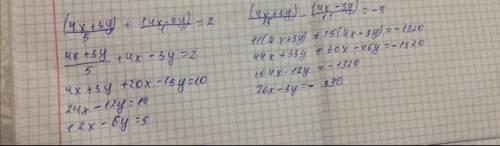 (4x+3y)/5 + (4x-3y)/1 = 2
(4x+3y)/5 + 4x - 3y = 2
4x + 3y + 20x - 15y = 10
24x - 12y = 10
12x - 6y = 5
(4x+3y)/15 - (4x-3y)/11 = -8
11(4x+3y) + 15(4x-3y) = -1320
44x + 33y + 60x - 45y = -1320
104x - 12y = -1320
26x - 3y = - 330